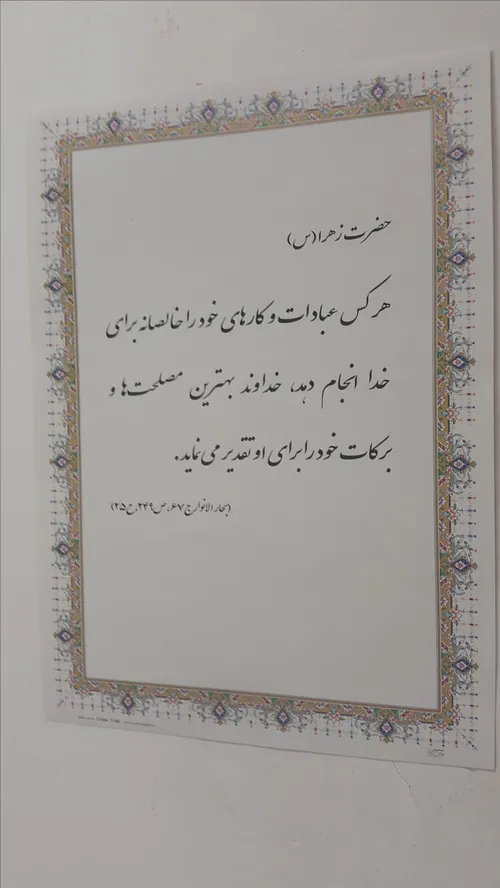 حضرت زهرا (س)
هر کس عبادات و کارهای خود را خالصانه برای
خدا انجام دهد، خداوند بهترین مصلحت‌ها و
برکات خود را برای او تقدیر می‌نماید.
(بحار الانوار ج ۶۷، ص ۲۴۹، ح ۲۵)